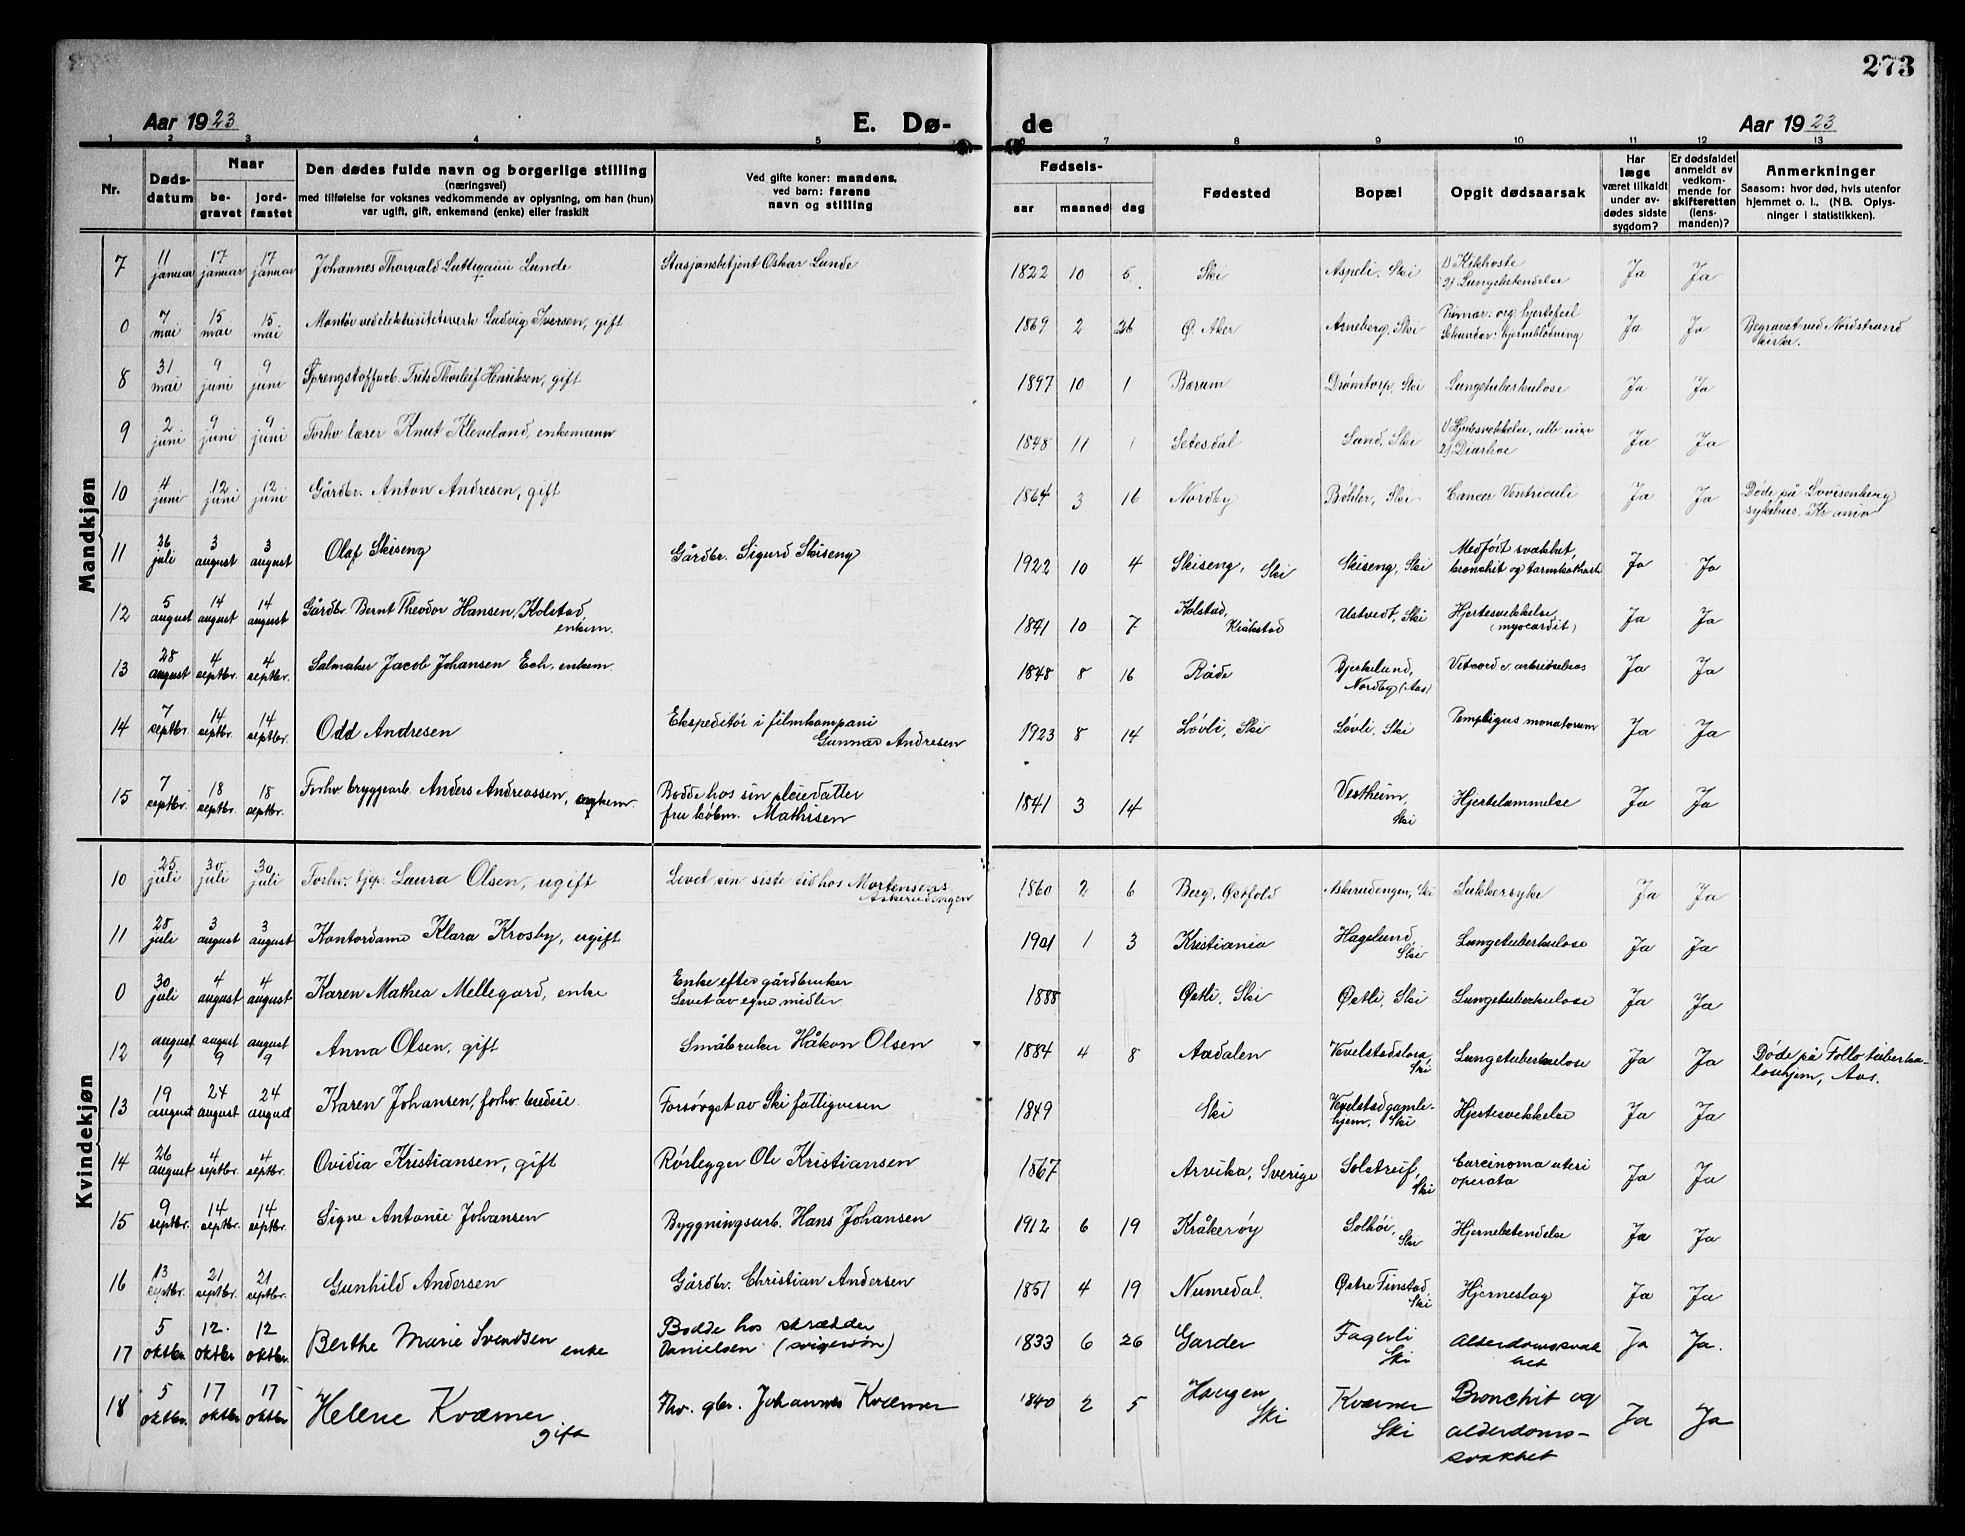 273
Aar 1923 E. Dø- de Aar 1923
1 2 3 4 5 6 7 8 9 10 11 12 13
Nr. Dødsdatum Naar begravet jordfæstet Den dødes fulde navn og borgerlige stilling (næringsvei) med tilføielse for voksnes vedkommende av oplysning, om han (hun) var ugift, gift, enkemand (enke) eller fraskilt Ved gifte koner: mandens, ved barn: farens navn og stilling Fødsels- aar maaned dag Fødested Bopæl Opgit dødsaarsak Har læge været tilkaldt under avdødes sidste sygdom? Er dødsfaldet anmeldt av vedkommende for skifteretten (lensmanden)? Anmerkninger Saasom: hvor død, hvis utenfor hjemmet o. l., (NB. Oplysninger i statistikken).
Mandkjøn
7 11 januar 17 januar 17 januar Johannes Thorvald Lunde Stasjonsbetjent Oskar Lunde 1822 10 5 Ski Aspeli, Ski 1) Kikhoste 2) Lungebetendelse Ja Ja
0 7 mai 15 mai 15 mai Montør ved elektrisitetsverk Ludvig Iversen, gift 1869 2 26 Ø. Aker Arneberg, Ski Primær: org. hjertefeil Sekundær: hjerneblødning Ja Ja Begravet ved Nordstrand kirke.
8 31 mai 9 juni 9 juni Sprengstoffarb. Frits Thorleif Henriksen, gift 1897 10 1 Bærum Drømtorp, Ski Lungetuberkulose Ja Ja
9 2 juni 9 juni 9 juni Forhv lærer Knut Kleveland, enkemann 1848 11 1 Setesdal Sand, Ski 1) Hjertesvekkelse, 2) Diarhoe Ja Ja
10 4 juni 12 juni 12 juni Gårdbr. Anton Andresen, gift 1864 3 16 Nordby Bøhler, Ski Cancer Ventriculi Ja Ja Døde på Lovisenberg sykehus. Kr.ania
11 26 juli 3 august 3 august Olaf Skiseng Gårdbr. Sigurd Skiseng 1922 10 4 Skiseng, Ski Skiseng, Ski Medfødt svakhet, bronchit og tarmkatharh Ja Ja
12 5 august 14 august 14 august Gårdbr. Bernt Theodor Hansen, Kolstad, enkem. 1841 10 7 Kolstad, Kråkstad Ustvedt, Ski Hjertesvekkelse, (myocardit) Ja Ja
13 28 august 4 septbr. 4 septbr. Salmaker Jacob Johansen Ech, enkem. 1848 8 16 Råde Bjerkelund, Nordby (Aas) Ja Ja
14 7 septbr. 14 septbr. 14 septbr. Odd Andresen Ekspeditør i filmkompani Gunnar Andresen 1923 8 14 Løvli, Ski Løvli, Ski Pemphigus monatorum Ja Ja
15 7 septbr. 18 septbr. 18 septbr. Forhv bryggearb. Anders Andreassen, enkem. Bodde hos sin pleiedatter fru kobm. Mathisen 1841 3 14 Vestheim, Ski Hjertelammelse Ja Ja
Kvindekjøn
10 25 juli 30 juli 30 juli Forhv. tjep. Laura Olsen, ugift Levet sin siste tid hos Mortensens Askerudengen 1860 2 6 Berg, Østfold Askerudengen, Ski Sukkersyke Ja Ja
11 28 juli 3 august 3 august Kontordame Klara Krosby, ugift 1901 1 3 Kristiania Hagelund, Ski Lungetuberkulose Ja Ja
0 30 juli 4 august 4 august Karen Mathea Mellegård, enke Enke efter gårdbruker Levet av egne midler 1888 Østli, Ski Østli, Ski Lungetuberkulose Ja Ja
12 august 1 august 9 august 9 Anna Olsen, gift Småbruker Håkon Olsen 1884 4 8 Aadalen Vevelstadslora, Ski Lungetuberkulose Ja Ja Døde på Follo tuberkulosehjem, Aas.
13 19 august 24 august 24 august Karen Johansen, forhv budeie. Forsørget av Ski fattigvesen 1849 Ski Vevelstad gamlehjem, Ski Hjertesvekkelse Ja Ja
14 26 august 4 septbr. 4 septbr. Ovidia Kristiansen, gift Rørlegger Ole Kristiansen 1867 Arvika, Sverige Solstreif, Ski Carcinoma uteri operata Ja Ja
15 9 septbr. 14 septbr. 14 septbr. Signe Antonie Johansen Byggningsarb. Hans Johansen 1912 6 19 Kråkerøy Solhøi, Ski Hjernebetendelse Ja Ja
16 13 septbr. 21 septbr. 21 septbr. Gunhild Andersen Gårdbr. Christian Andersen 1851 4 19 Numedal. Østre Finstad, Ski Hjerneslag Ja Ja
17 5 oktbr. 12. oktbr 12 oktbr. Berthe Marie Svendsen enke Bodde hos skrædder Danielsen (svigersøn) 1833 6 26 Garder Fagerli Ski Alderdomssvakhet Ja Ja.
18 5 oktbr. 17 oktbr 17 oktbr Helene Kværner gift Fhv. gbr. Johannes Kværner 1840 2 5 Haugen Ski Kværner Ski Bronchit og alderdoms-svakhet Ja Ja